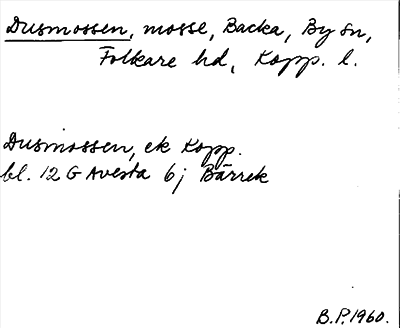 Dusmossen, mosse, Backa, By sn,
Folkare hd, Kopp. l.
Dusmossen, ek Kopp.
bl. 12 G Avesta 6 j Bärrek
B.P. 1960.